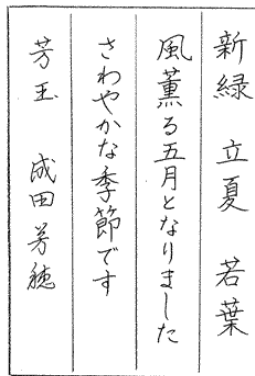 新緑 立夏 若葉
風薫る五月となりました
さわやかな季節です
芳玉 成田芳穂